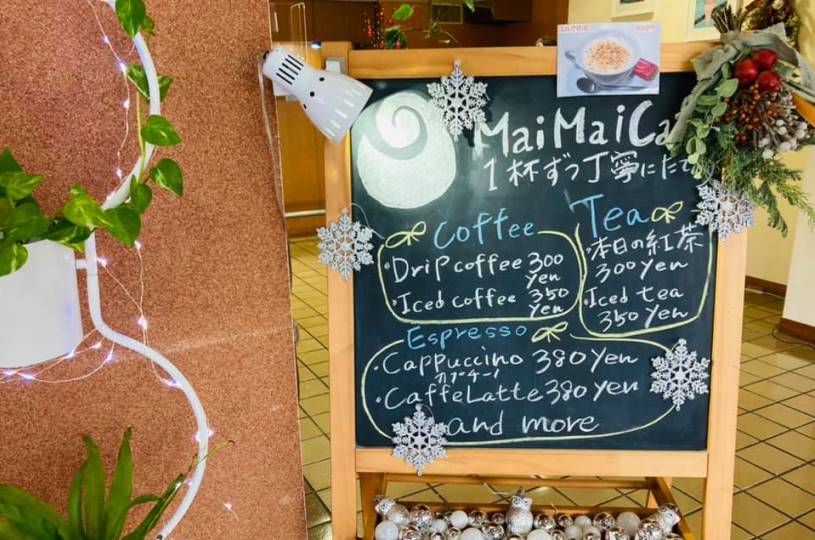 MaiMaiCa
1杯ずつ丁寧にたて
Coffee
・Drip coffee 300 yen
・Iced coffee 350 yen
Tea
・本日の紅茶
300 yen
・Iced tea
350 yen
Espresso
・Cappuccino 380 yen
カプチーノ
・CaffeLatte 380 yen
and more